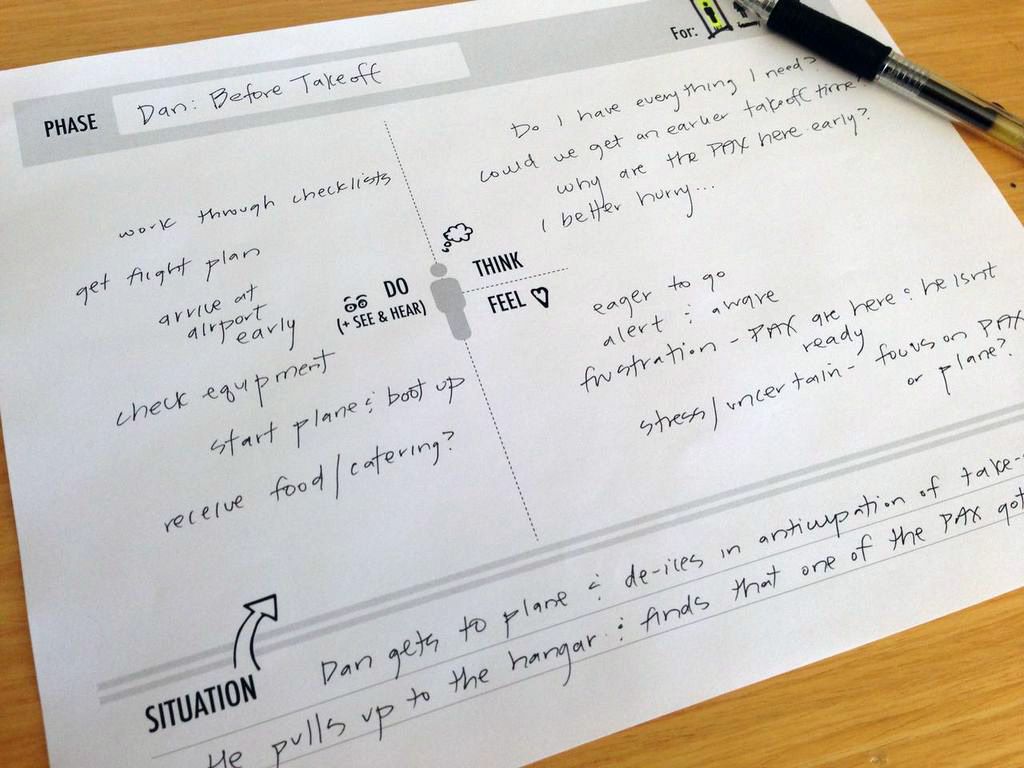 For:
PHASE Dan: Before Takeoff
work through checklists
get flight plan
arrive at
airport
early
check equipment
start plane & boot up
receive food/catering?
DO
(+ SEE & HEAR)
THINK
FEEL
Do I have everything I need?
could we get an earlier takeoff time?
why are the PAX here early?
I better hurry...
eager to go
alert & aware
frustration - PAX are here & he isnt
ready
stress/uncertain - focus on PAX
or plane?
SITUATION
Dan gets to plane & de-ices in anticipation of take-
He pulls up to the hangar & finds that one of the PAX got